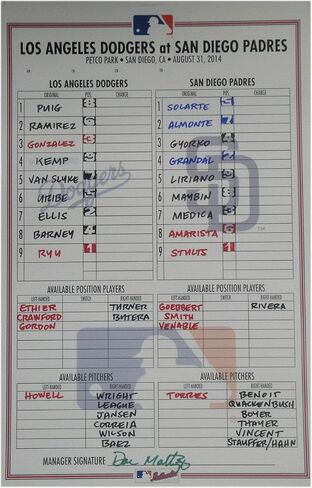 LOS ANGELES DODGERS at SAN DIEGO PADRES
PETCO PARK • SAN DIEGO, CA • AUGUST 31, 2014
LOS ANGELES DODGERS
ORIGINAL POS. CHANGE
1 PUIG 8
2 RAMIREZ
3 GONZALEZ 3
4 KEMP
5 VAN SLYKE
6 URIBE
7 ELLIS
8 BARNEY
9 RYU 1
SAN DIEGO PADRES
ORIGINAL POS. CHANGE
1 SOLARTE
2 ALMONTE
3 GYORKO
4 GRANDAL
5 LIRIANO
6 MAYBIN
7 MEDICA
8 AMARISTA
9 STULTS 1
Dodgers
SD
AVAILABLE POSITION PLAYERS
LEFT-HANDED SWITCH RIGHT-HANDED
ETHIER TURNER
CRAWFORD BUTERA
GORDON
AVAILABLE POSITION PLAYERS
LEFT-HANDED SWITCH RIGHT-HANDED
GOEBBERT RIVERA
SMITH
VENABLE
AVAILABLE PITCHERS
LEFT-HANDED RIGHT-HANDED
HOWELL WRIGHT
LEAGUE
JANSEN
CORREIA
WILSON
BAEZ
AVAILABLE PITCHERS
LEFT-HANDED RIGHT-HANDED
TORRES BENOIT
QUACKENBUSH
BOYER
THAYER
VINCENT
STAUFFER/HAHN
MANAGER SIGNATURE Don Matt